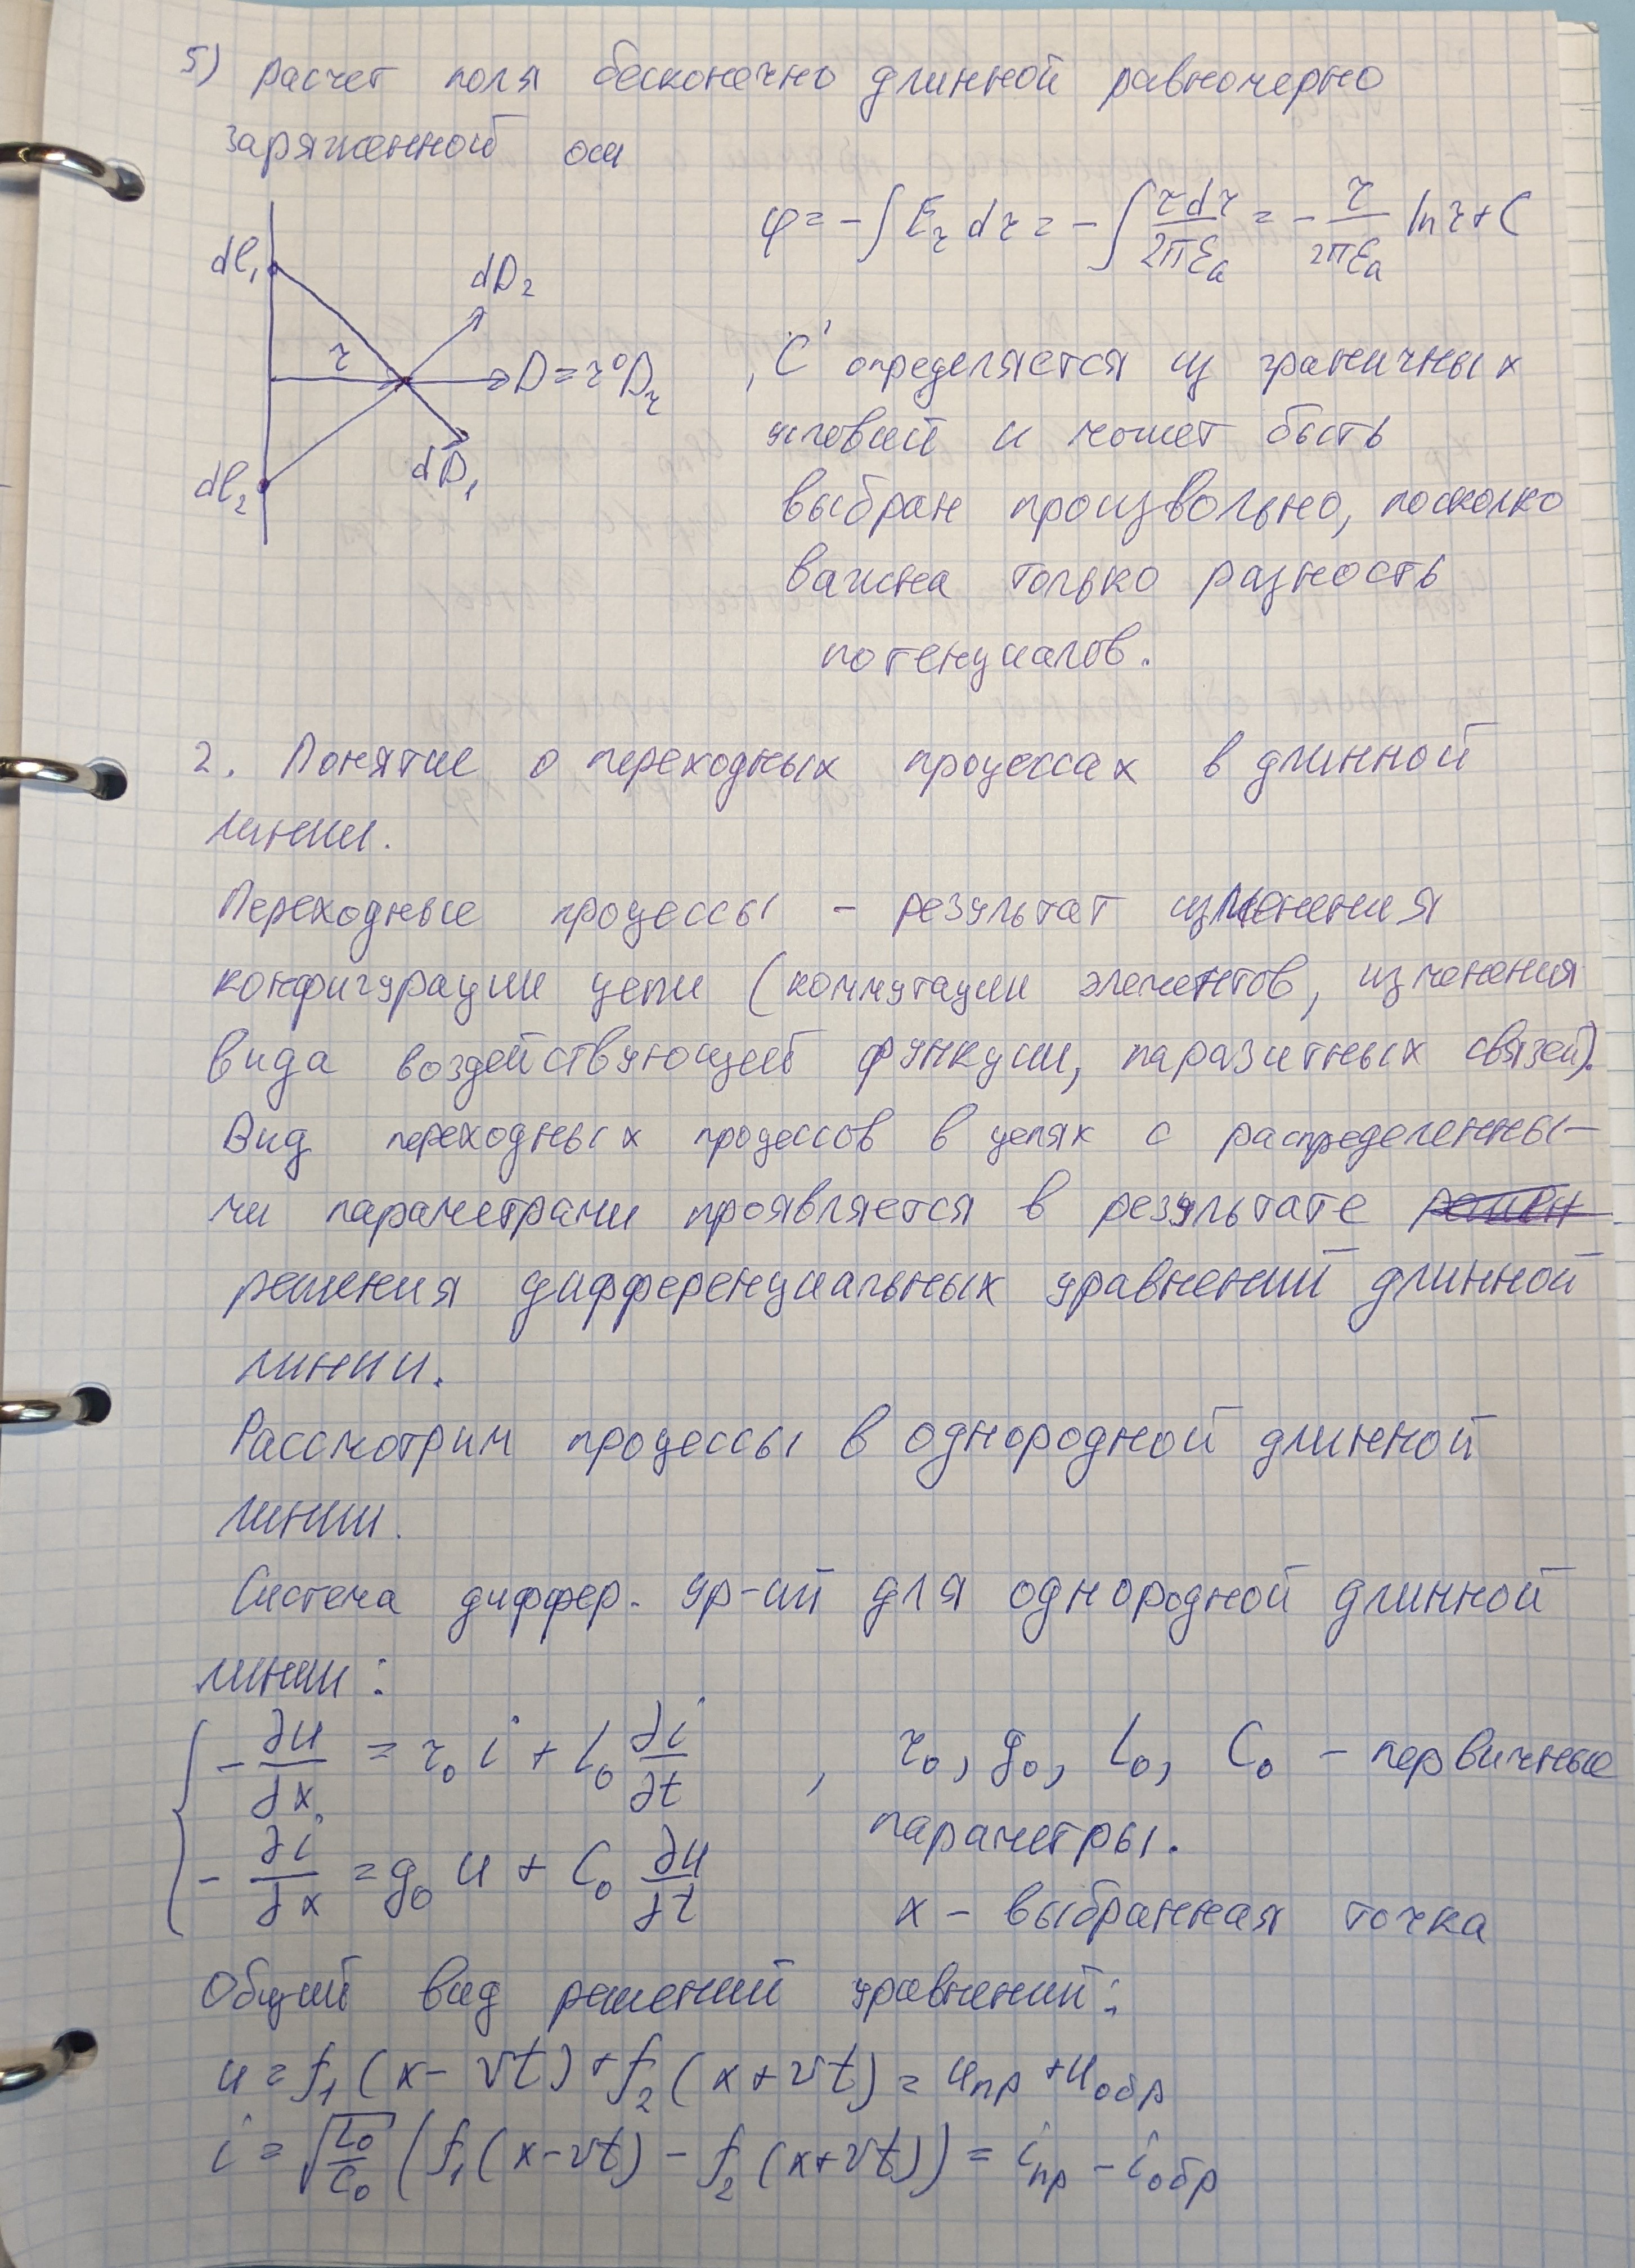 5) расчет поля бесконечно длинной равномерно
заряженной оси
φ = -∫ E_r dr = -∫ τdr/2πε_a = - τ/2πε_a ln r + C
dl₁
dD₂
r
D = r⁰D_r
dD₁
dl₂
, C' определяется из граничных
условий и может быть
выбран произвольно, посколко
важна только разность
потенциалов.
2. Понятие о переходных процессах в длинной
линии.
Переходные процессы - результат изменения
конфигурации цепи (коммутации элементов, изменения
вида воздействующей функции, паразитных связей).
Вид переходных процессов в цепях с распределенны-
ми параметрами проявляется в результате решен
решения дифференциальных уравнений длинной
линии.
Рассмотрим процессы в однородной длинной
линии.
Система диффер. ур-ий для однородной длинной
линии:
{ -∂u/∂x = r₀ i + L₀ ∂i/∂t , r₀, g₀, L₀, C₀ - первичные
параметры.
-∂i/∂x = g₀ u + C₀ ∂u/∂t
x - выбранная точка
Общий вид решений уравнений:
u = f₁(x - vt) + f₂(x + vt) = u_пр + u_обр
i = √(L₀/C₀) (f₁(x - vt) - f₂(x + vt)) = i_пр - i_обр